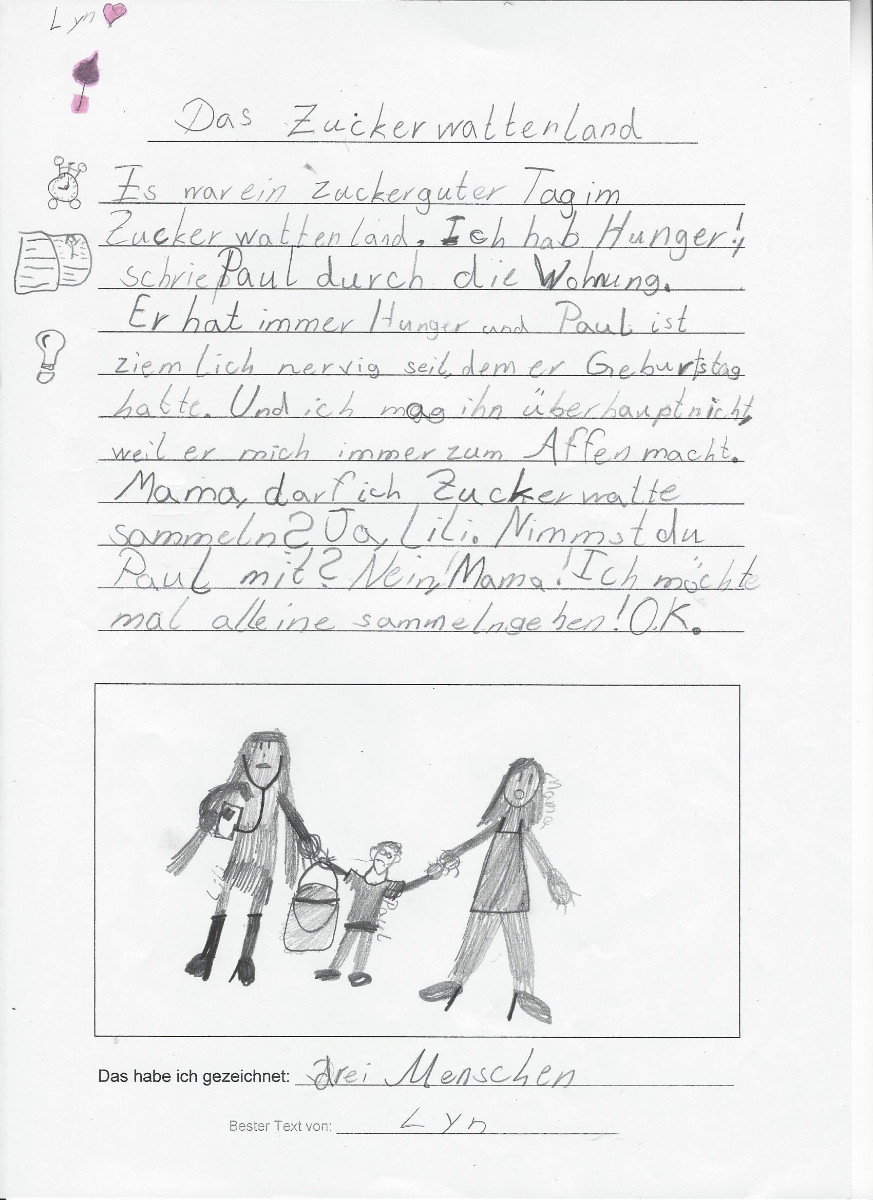 Lyn
Das Zuckerwattenland
Es war ein zuckerguter Tag im
Zuckerwattenland. Ich hab Hunger!,
schrie Paul durch die Wohnung.
Er hat immer Hunger und Paul ist
ziemlich nervig seit dem er Geburtstag
hatte. Und ich mag ihn überhauptnicht,
weil er mich immer zum Affen macht.
Mama, darf ich Zuckerwatte
sammeln? Ja, Lili. Nimmst du
Paul mit? Nein, Mama! Ich möchte
mal alleine sammelngehen! O.K.
Mama
Lili
Paul
Das habe ich gezeichnet: drei Menschen
Bester Text von: Lyn